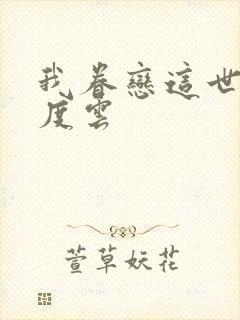 我眷戀這世
度雲
萱草妖花